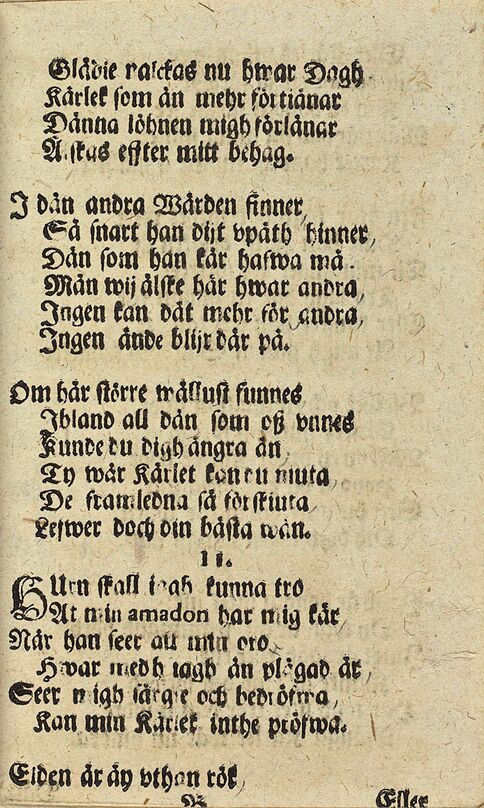 Glädie ralckas nu hwar Dagh
Kärlek som än mehr förtiänar
Dänna löhnen migh förlänar
Älskas effter mitt behag.
I dän andra Wärden finner,
Så snart han dijt vpåth hinner,
Dän som han kär hafwa må.
Män wij älske här hwar andra,
Ingen kan dät mehr för andra,
Ingen ände blijr där på.
Om här större wällust funnes
Ibland all dän som oß vnnes
Kunde du digh ängra än,
Ty wår Kärlek kan du muta
De framledna så förskiuta
Lefwer doch din bästa wän.
11.
HUrn skall iagh kunna tro
At min amadon har mig kär,
När han seer all min oro
Hwar medh iagh än plågad är,
Seer migh särgie och bedröfwa,
Kan min Kärlek inthe pröfwa.
Elden är äy vthan rök,
B
Eller